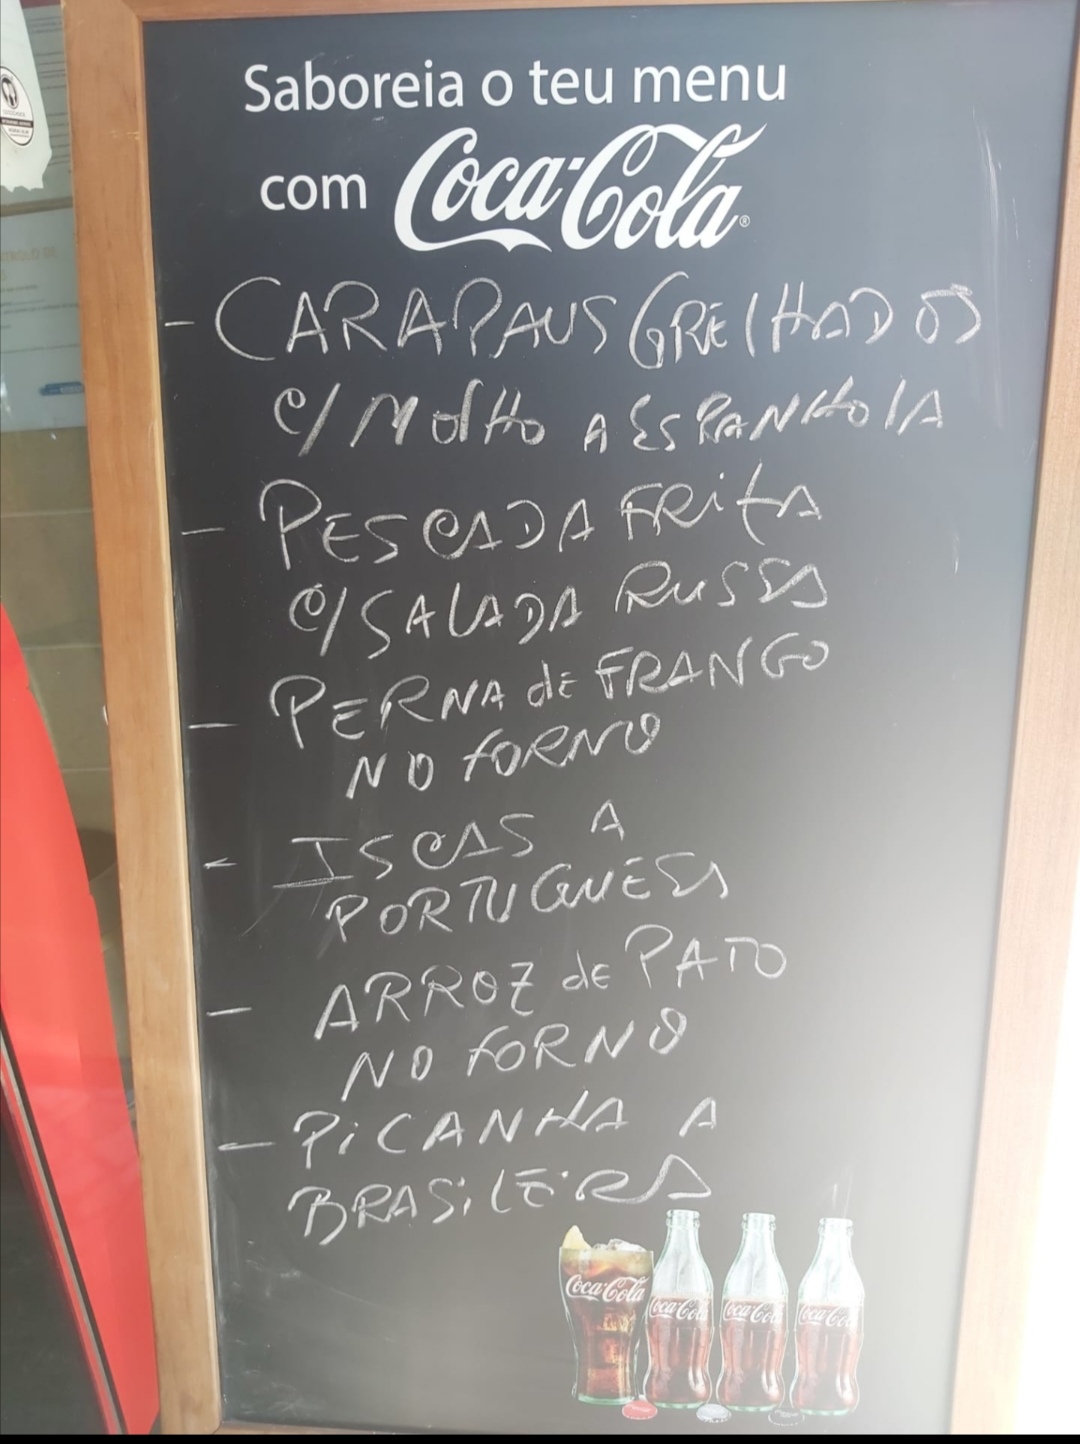 Saboreia o teu menu
com Coca-Cola®
- CARAPAUS GRELHADOS
C/ MOLHO A ESPANHOLA
- PESCADA FRITA
C/ SALADA RUSSA
- PERNA de FRANGO
NO FORNO
- ISCAS A
PORTUGUESA
- ARROZ de PATO
NO FORNO
- PiCANHA A
BRASiLEiRA
Coca-Cola Coca-Cola Coca-Cola Coca-Cola